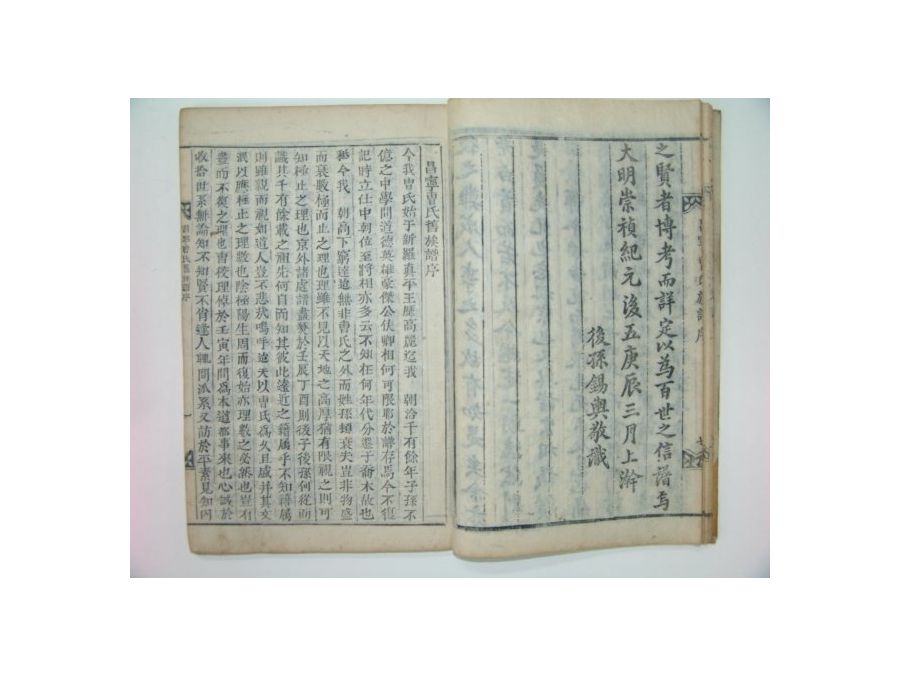 之賢者博考而詳定以為百世之信譜与
大明崇禎紀元後五庚辰三月上澣
後孫錫興敬識
昌寧曺氏舊族譜序
今我曺氏始于新羅真平王歷高麗迄我 朝洽千有餘年子孫不
億之中學問道德英雄豪傑公侯卿相何可限耶於譜存焉今不復
記時立仕中朝位至將相亦多云不知在何年代分壘于喬木故也
今我 朝高下窮達遠無非曺氏之外而姓孫 衰夫豈非物盛
而衰敗極而止之理也雖不見以天地之高厚猶有限視之則可
知極止之理也京外諸處譜盡 於壬辰丁酉則後子後孫何從而
識其千有餘載之祖先何自而知其彼此遠近之籍屬乎不知籍屬
則雖親而視如道人豈不悲哉嗚呼遠天以曺氏為久且盛幷其文
泯以應極止之理數也陰極陽生周而復始亦理數之必然也豈有
盡而不復之理也曺侯理悼於壬寅年間為本道都事來也心誠於
收拾世系無論知不知賢不肖達人輒問派系又訪於平素見知內
昌寧曺氏舊族譜序